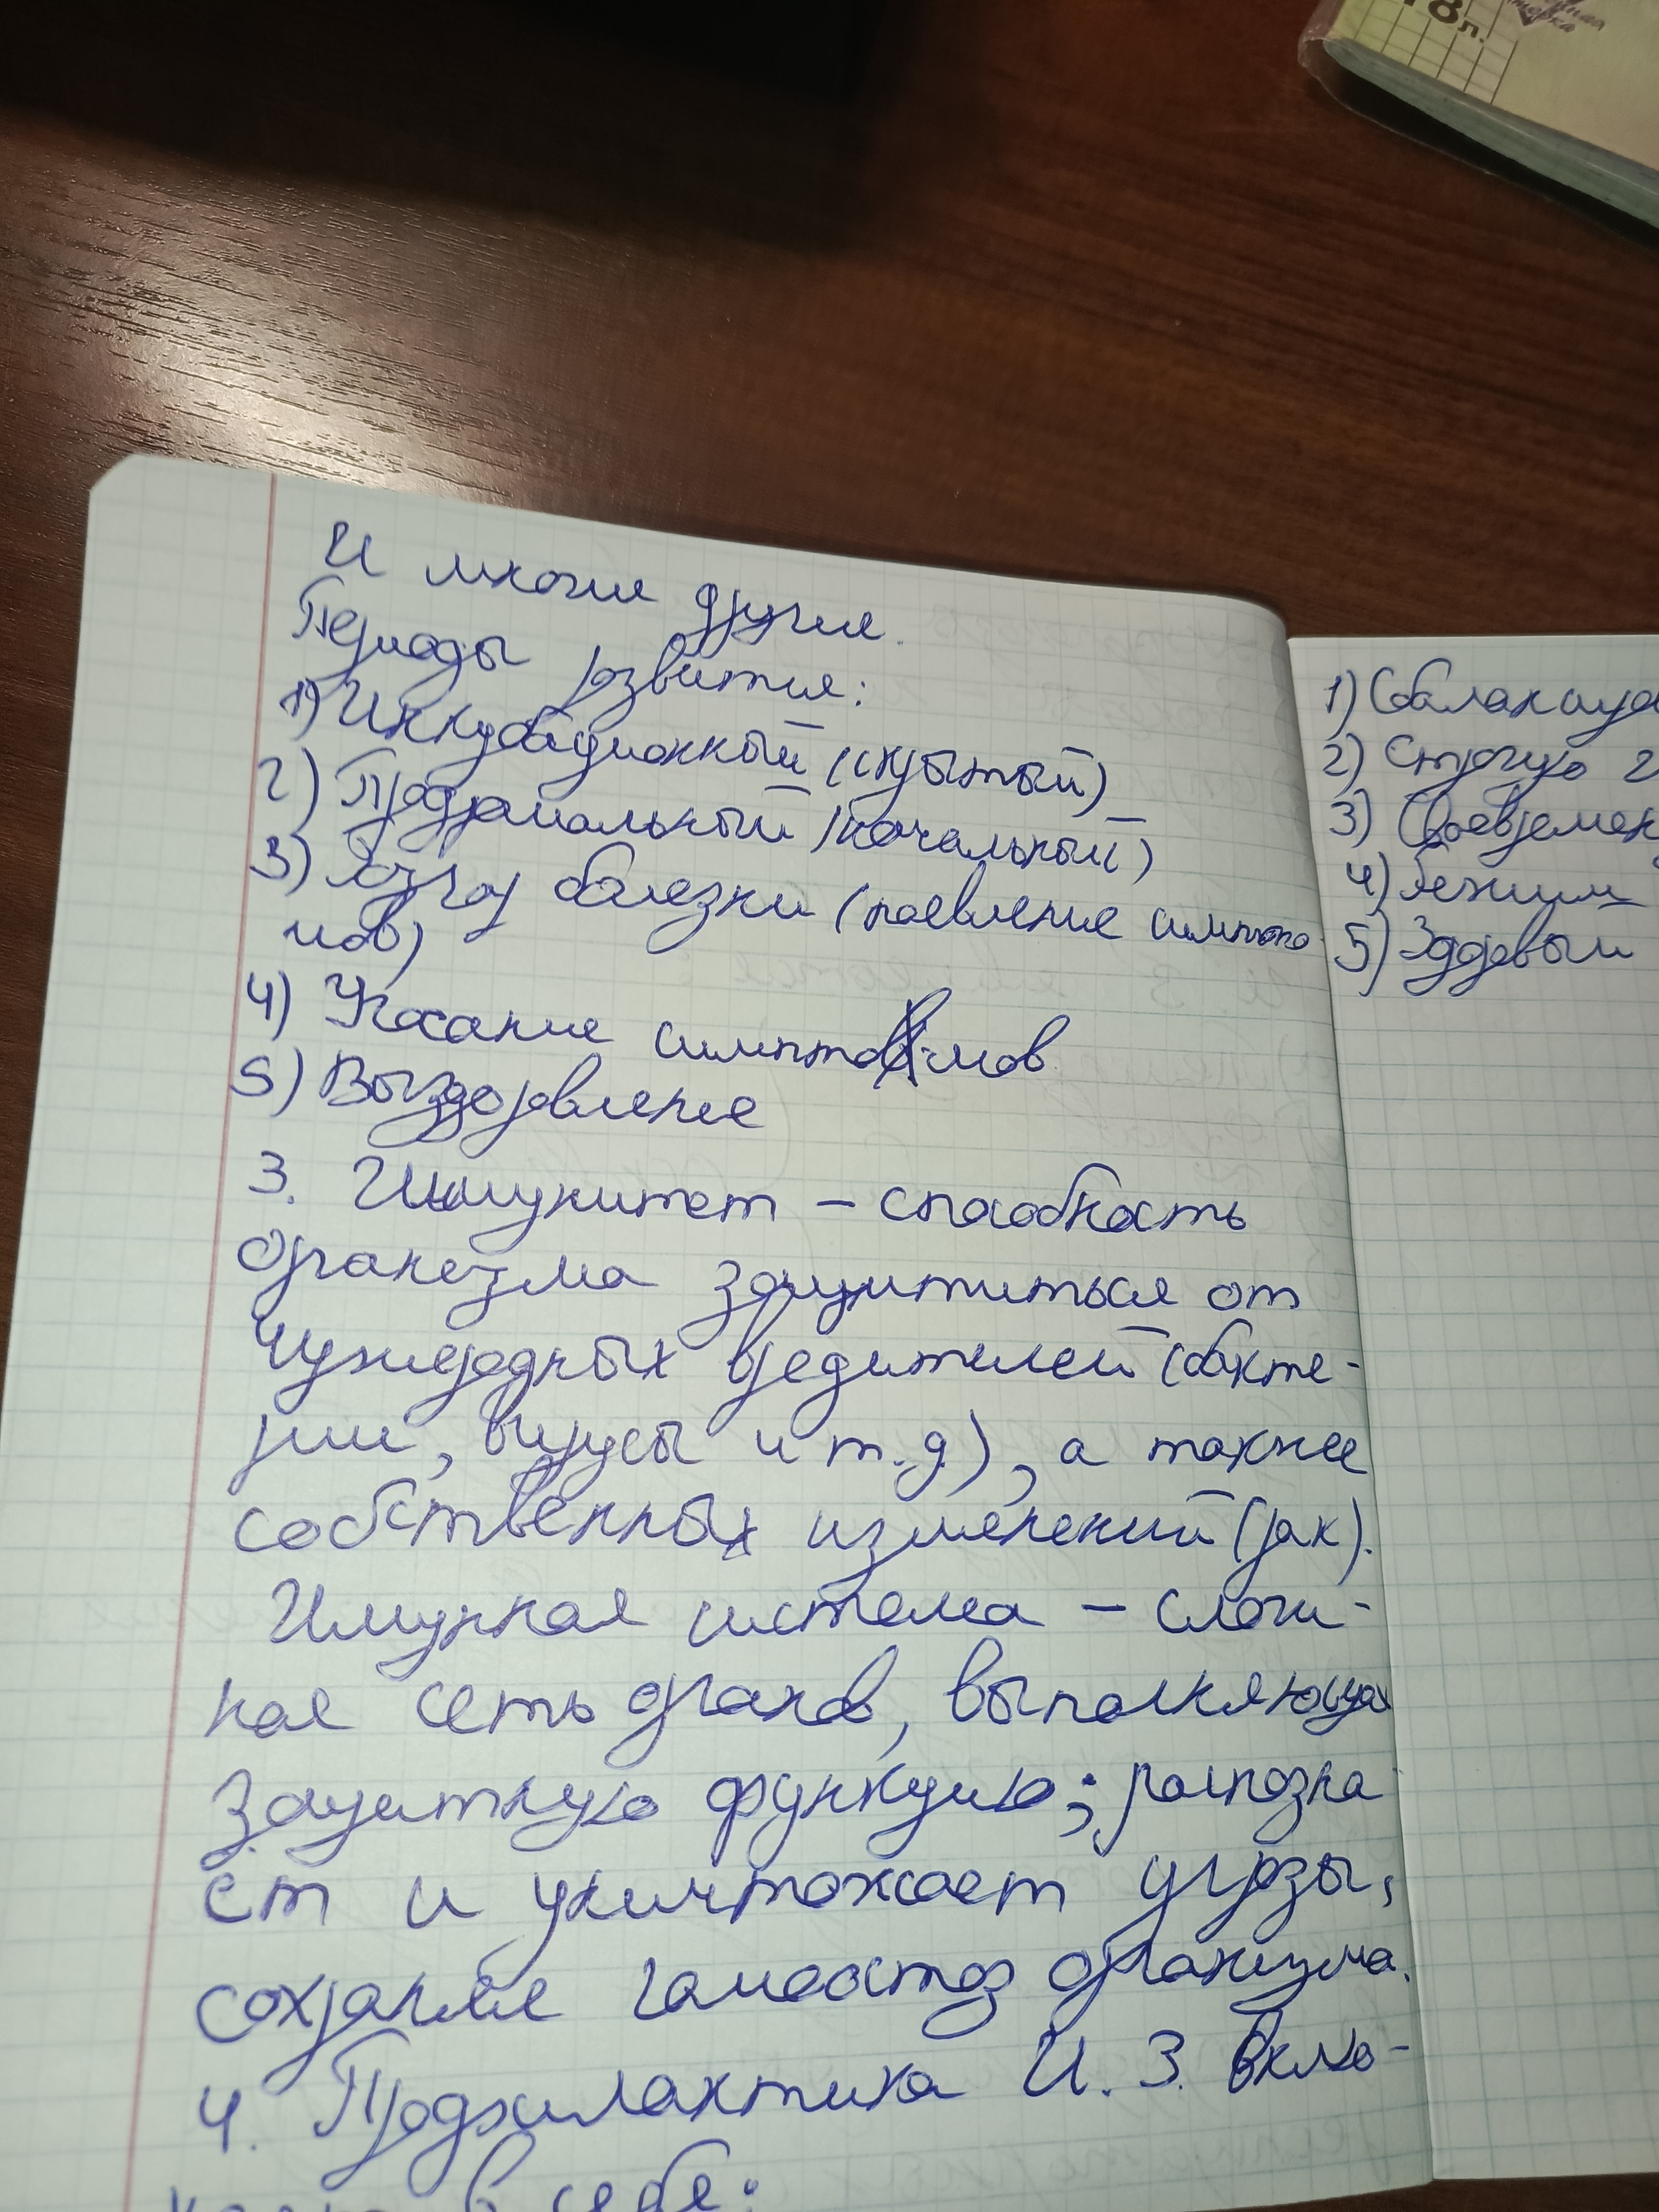 И многие другие.
Периоды развития:
1) Инкубационный (скрытый)
2) Продромальный (начальный)
3) Разгар болезни (появление симпто-
мов)
4) Угасание симптомов
5) Выздоровление
3. Иммунитет – способность
организма защититься от
чужеродных вредителей (бакте-
рии, вирусы и т.д), а также
собственных изменений (рак).
Имунная система – слож-
ная сеть органов, выполняющая
защитную функцию; распозна
ёт и уничтожает угрозы,
сохраняя гомеостаз организма.
4. Профилактика И. З. вклю-
в себе:
1) Сбалансиро
2) Строгую г
3) Своевремен
4) Режим
5) Здоровый
18л.